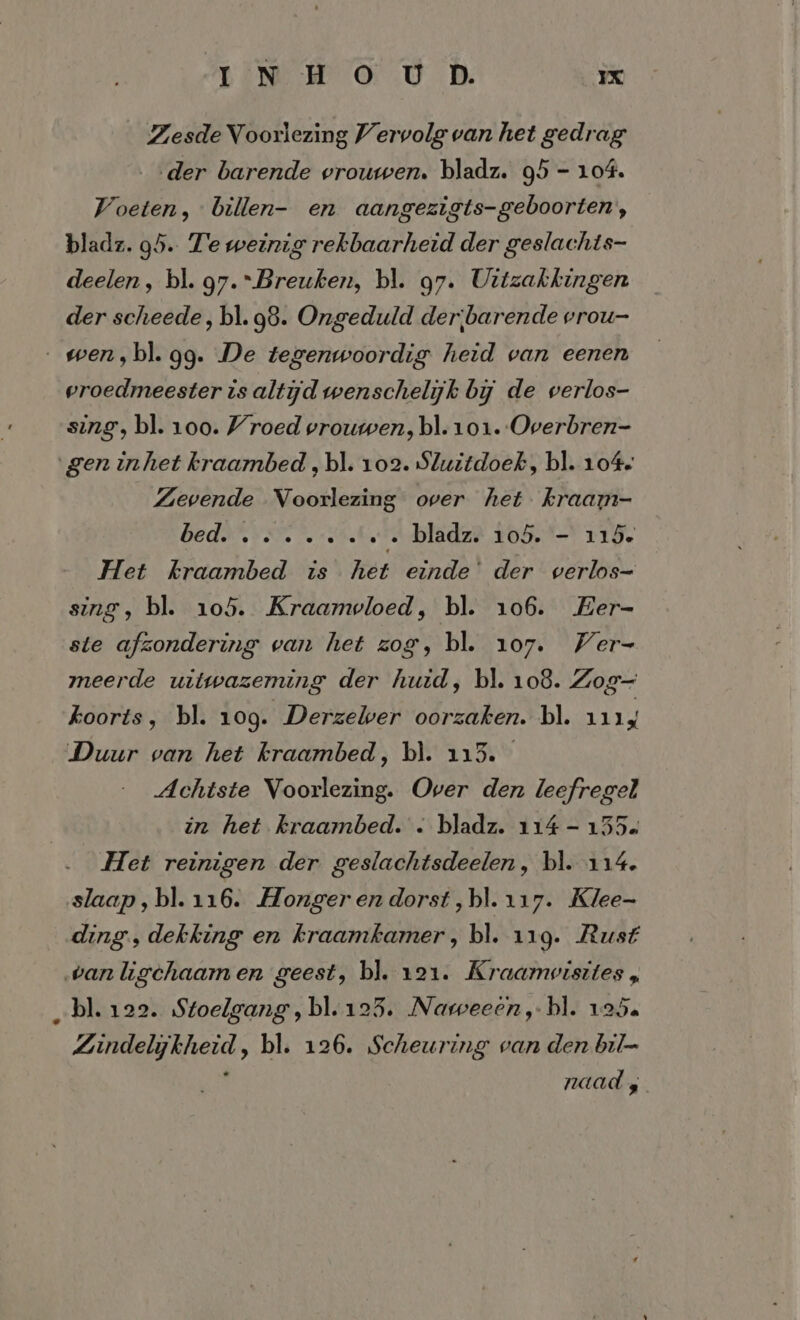 INHOUD. IX
Zesde Voorlezing Vervolg van het gedrag
der barende vrouwen. bladz. 95 – 104.
Voeten, billen- en aangezigts-geboorten,
bladz. 95. Te weinig rekbaarheid der geslachts-
deelen, bl. 97. Breuken, bl. 97. Uitzakkingen
der scheede, bl. 98. Ongeduld der barende vrou-
wen, bl. 99. De tegenwoordig heid van eenen
vroedmeester is altijd wenschelijk bij de verlos-
sing, bl. 100. Vroed vrouwen, bl. 101. Overbren-
gen in het kraambed, bl. 102. Sluitdoek, bl. 104.
Zevende Voorlezing over het kraam-
bed. . . . . . . . . bladz. 105. – 115.
Het kraambed is het einde der verlos-
sing, bl. 105. Kraamvloed, bl. 106. Eer-
ste afzondering van het zog, bl. 107. Ver-
meerde uitwazeming der huid, bl. 108. Zog-
koorts, bl. 109. Derzelver oorzaken. bl. 111,
Duur van het kraambed, bl. 113.
Achtste Voorlezing. Over den leefregel
in het kraambed. . bladz. 114 – 135.
Het reinigen der geslachtsdeelen, bl. 114.
slaap, bl. 116. Honger en dorst, bl. 117. Klee-
ding, dekking en kraamkamer, bl. 119. Rust
van ligchaam en geest, bl. 121. Kraamvisites,
bl. 122. Stoelgang, bl. 123. Naweeën, bl. 125.
Zindelijkheid, bl. 126. Scheuring van den bil-
naad,